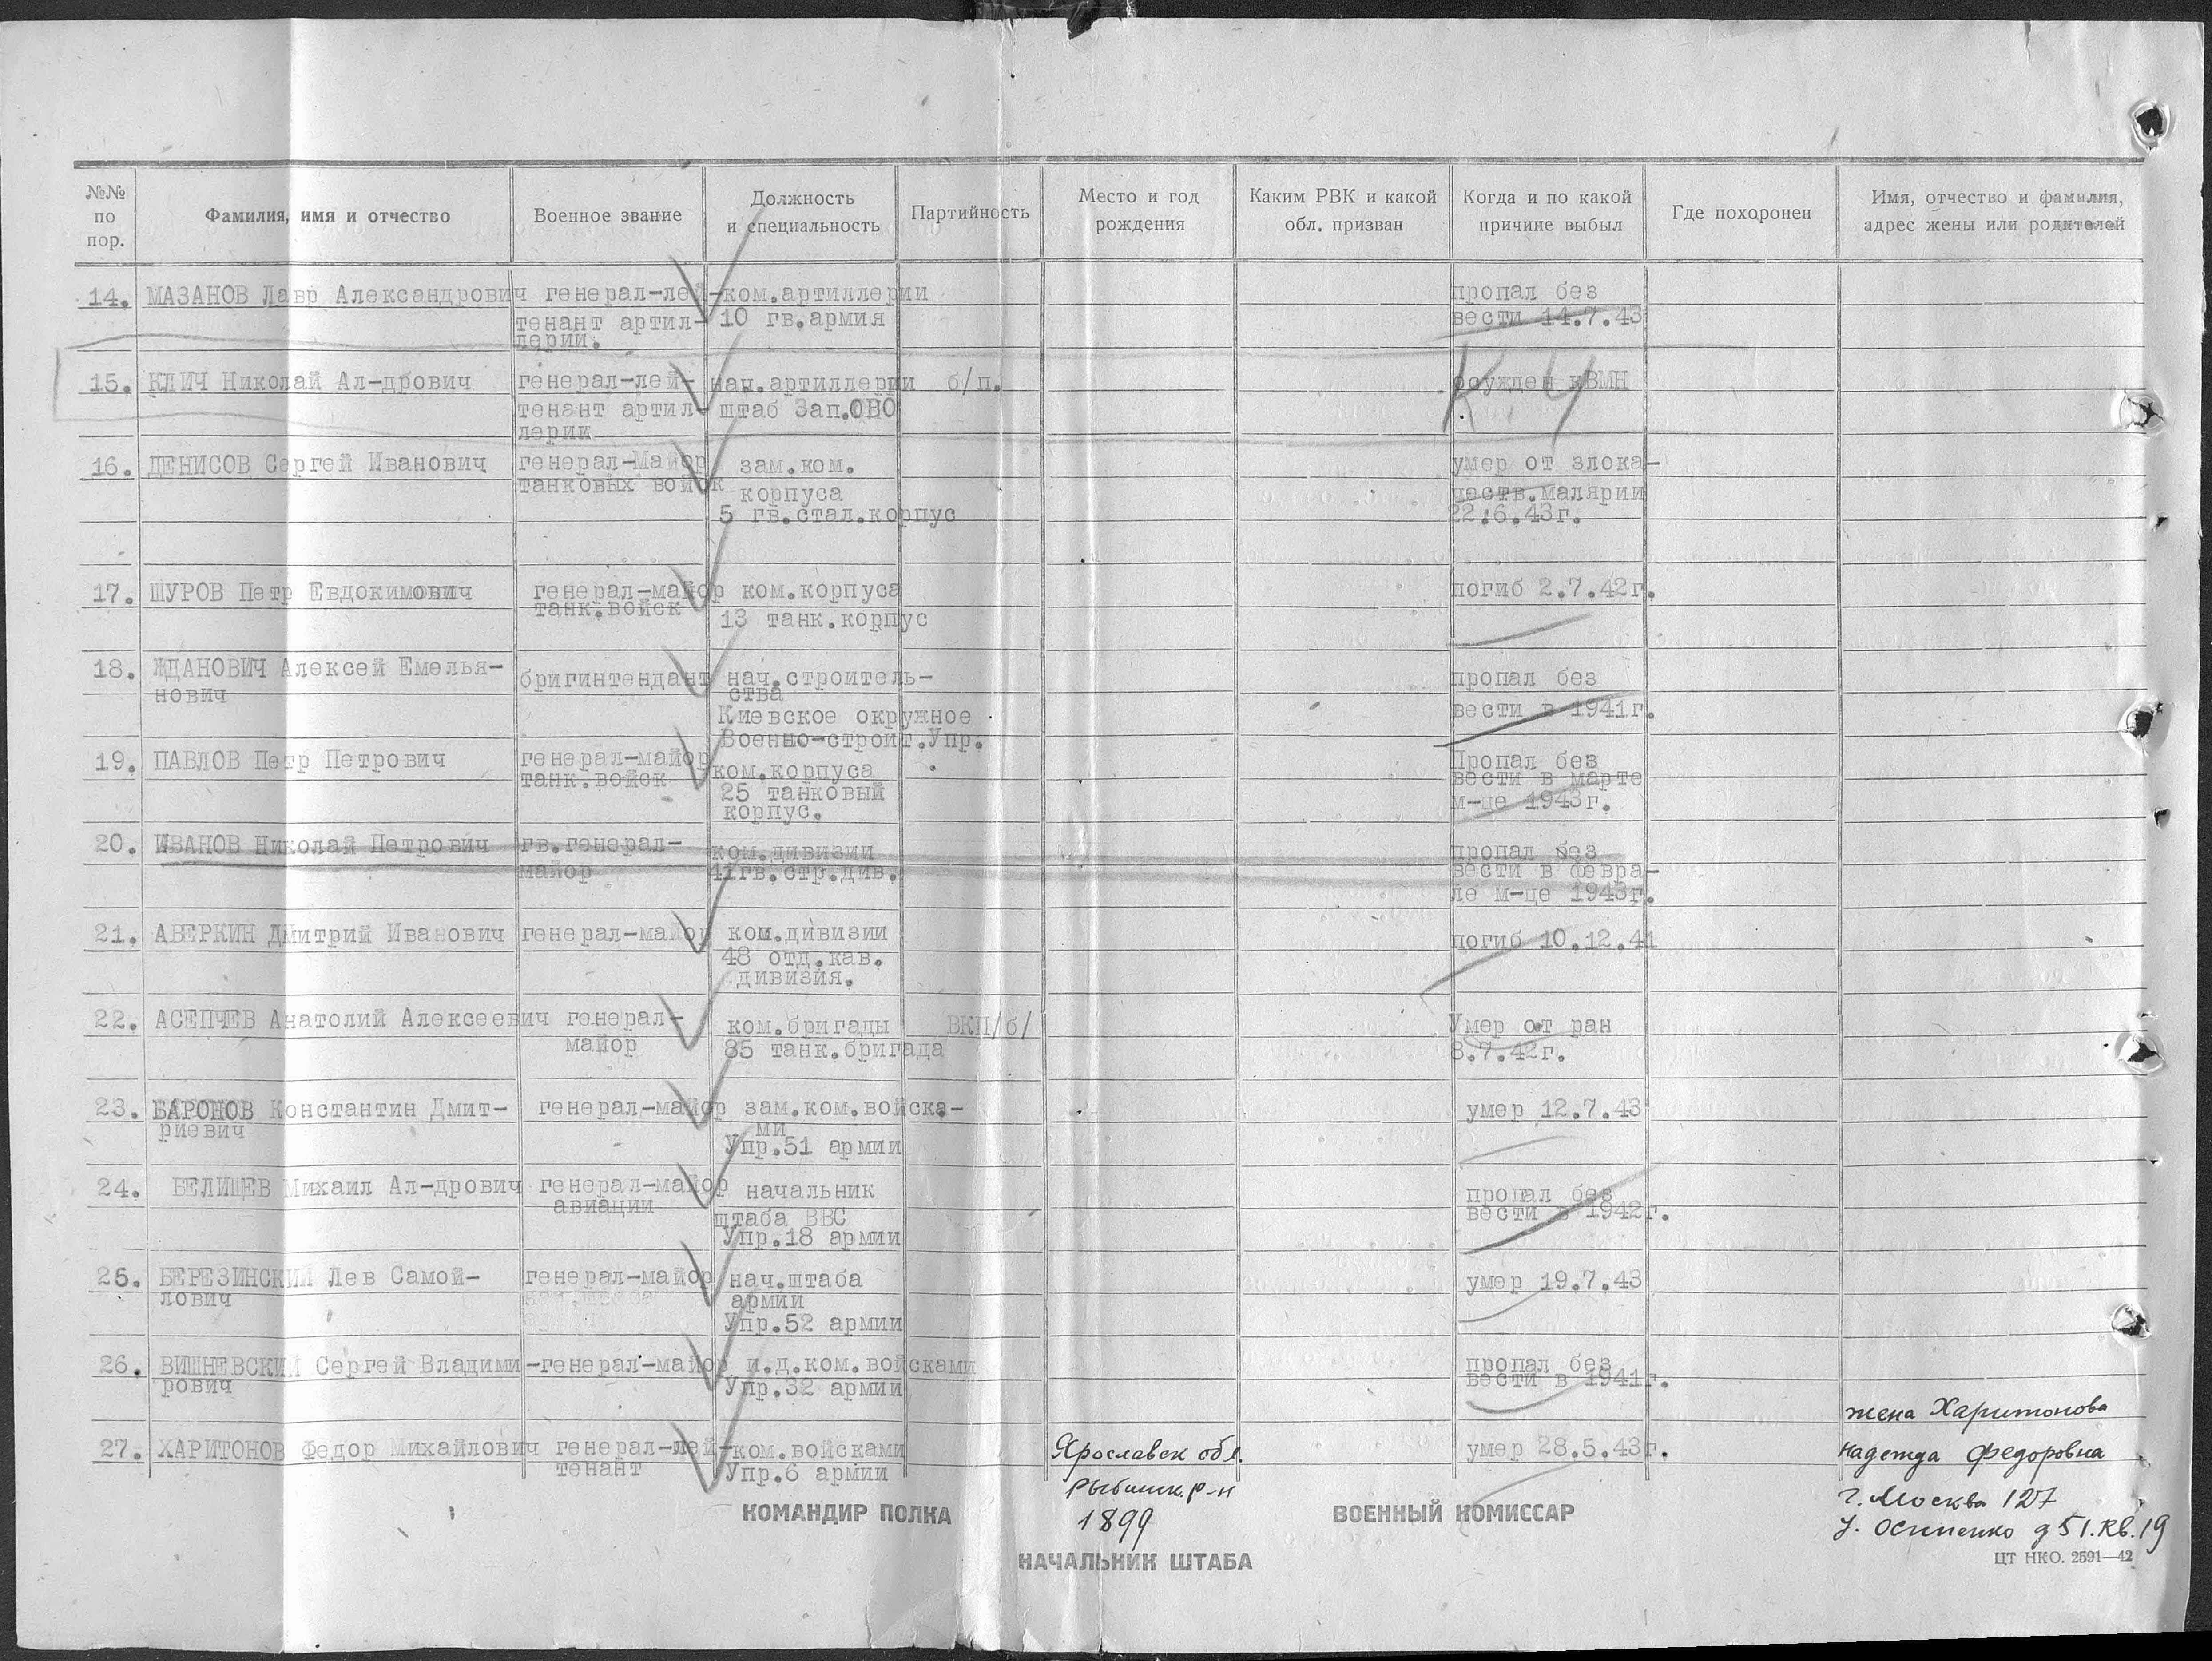 №№ по пор.
Фамилия, имя и отчество
Военное звание
Должность и специальность
Партийность
Место и год рождения
Каким РВК и какой обл. призван
Когда и по какой причине выбыл
Где похоронен
Имя, отчество и фамилия, адрес жены или родителей
14. МАЗАНОВ Лавр Александрович генерал-лей- ком.артиллерии пропал без
тенант артил- 10 гв.армия вести 14.7.43
лерии.
15. КЛИЧ Николай Ал-дрович генерал-лей- нач.артиллерии б/п. осужден кВМН
тенант артил- штаб Зап.ОВО
лерии
16. ДЕНИСОВ Сергей Иванович генерал-Майор зам.ком. умер от злока-
танковых войск корпуса честв.малярии
5 гв.стал.корпус 22.6.43г.
17. ШУРОВ Петр Евдокимович генерал-майор ком.корпуса погиб 2.7.42г.
танк.войск 13 танк.корпус
18. ЖДАНОВИЧ Алексей Емелья- бригинтендант нач.строитель- пропал без
нович ства вести в 1941г.
Киевское окружное
Военно-строит.Упр.
19. ПАВЛОВ Петр Петрович генерал-майор ком.корпуса Пропал без
танк.войск 25 танковый вести в марте
корпус. м-це 1943г.
20. ИВАНОВ Николай Петрович гв.генерал- ком.дивизии пропал без
майор 41гв.стр.див. вести в февра-
ле м-це 1943г.
21. АВЕРКИН Дмитрий Иванович генерал-майор ком.дивизии погиб 10.12.41
48 отд.кав.
дивизия.
22. АСЕПЧЕВ Анатолий Алексеевич генерал- ком.бригады ВКП/б/ Умер от ран
майор 85 танк.бригада 8.7.42г.
23. БАРОНОВ Константин Дмит- генерал-майор зам.ком.войска- умер 12.7.43
риевич ми
Упр.51 армии
24. БЕЛИШЕВ Михаил Ал-дрович генерал-майор начальник пропал без
авиации штаба ВВС вести в 1942г.
Упр.18 армии
25. БЕРЕЗИНСКИЙ Лев Самой- генерал-майор нач.штаба умер 19.7.43
лович армии
Упр.52 армии
26. ВИШНЕВСКИЙ Сергей Владими- генерал-майор и.д.ком.войсками пропал без
рович Упр.32 армии вести в 1941г.
27. ХАРИТОНОВ Федор Михайлович генерал-лей- ком.войсками Ярославск обл. умер 28.5.43г.
тенант Упр.6 армии Рыбинск.р-н
1899
жена Харитонова
Надежда Федоровна
г. Москва 127
у. Осипенко д 51.кв.19
КОМАНДИР ПОЛКА
ВОЕННЫЙ КОМИССАР
НАЧАЛЬНИК ШТАБА
ЦТ НКО. 2591—42